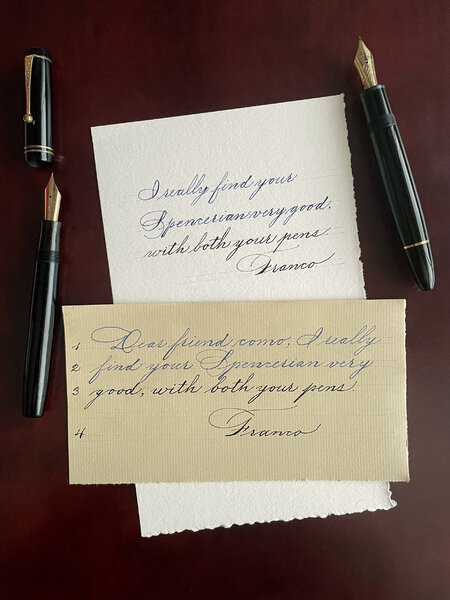 I really find your
Spencerian very good,
with both your pens
Franco
1 Dear friend como, I really
2 find your Spencerian very
3 good, with both your pens
4 Franco